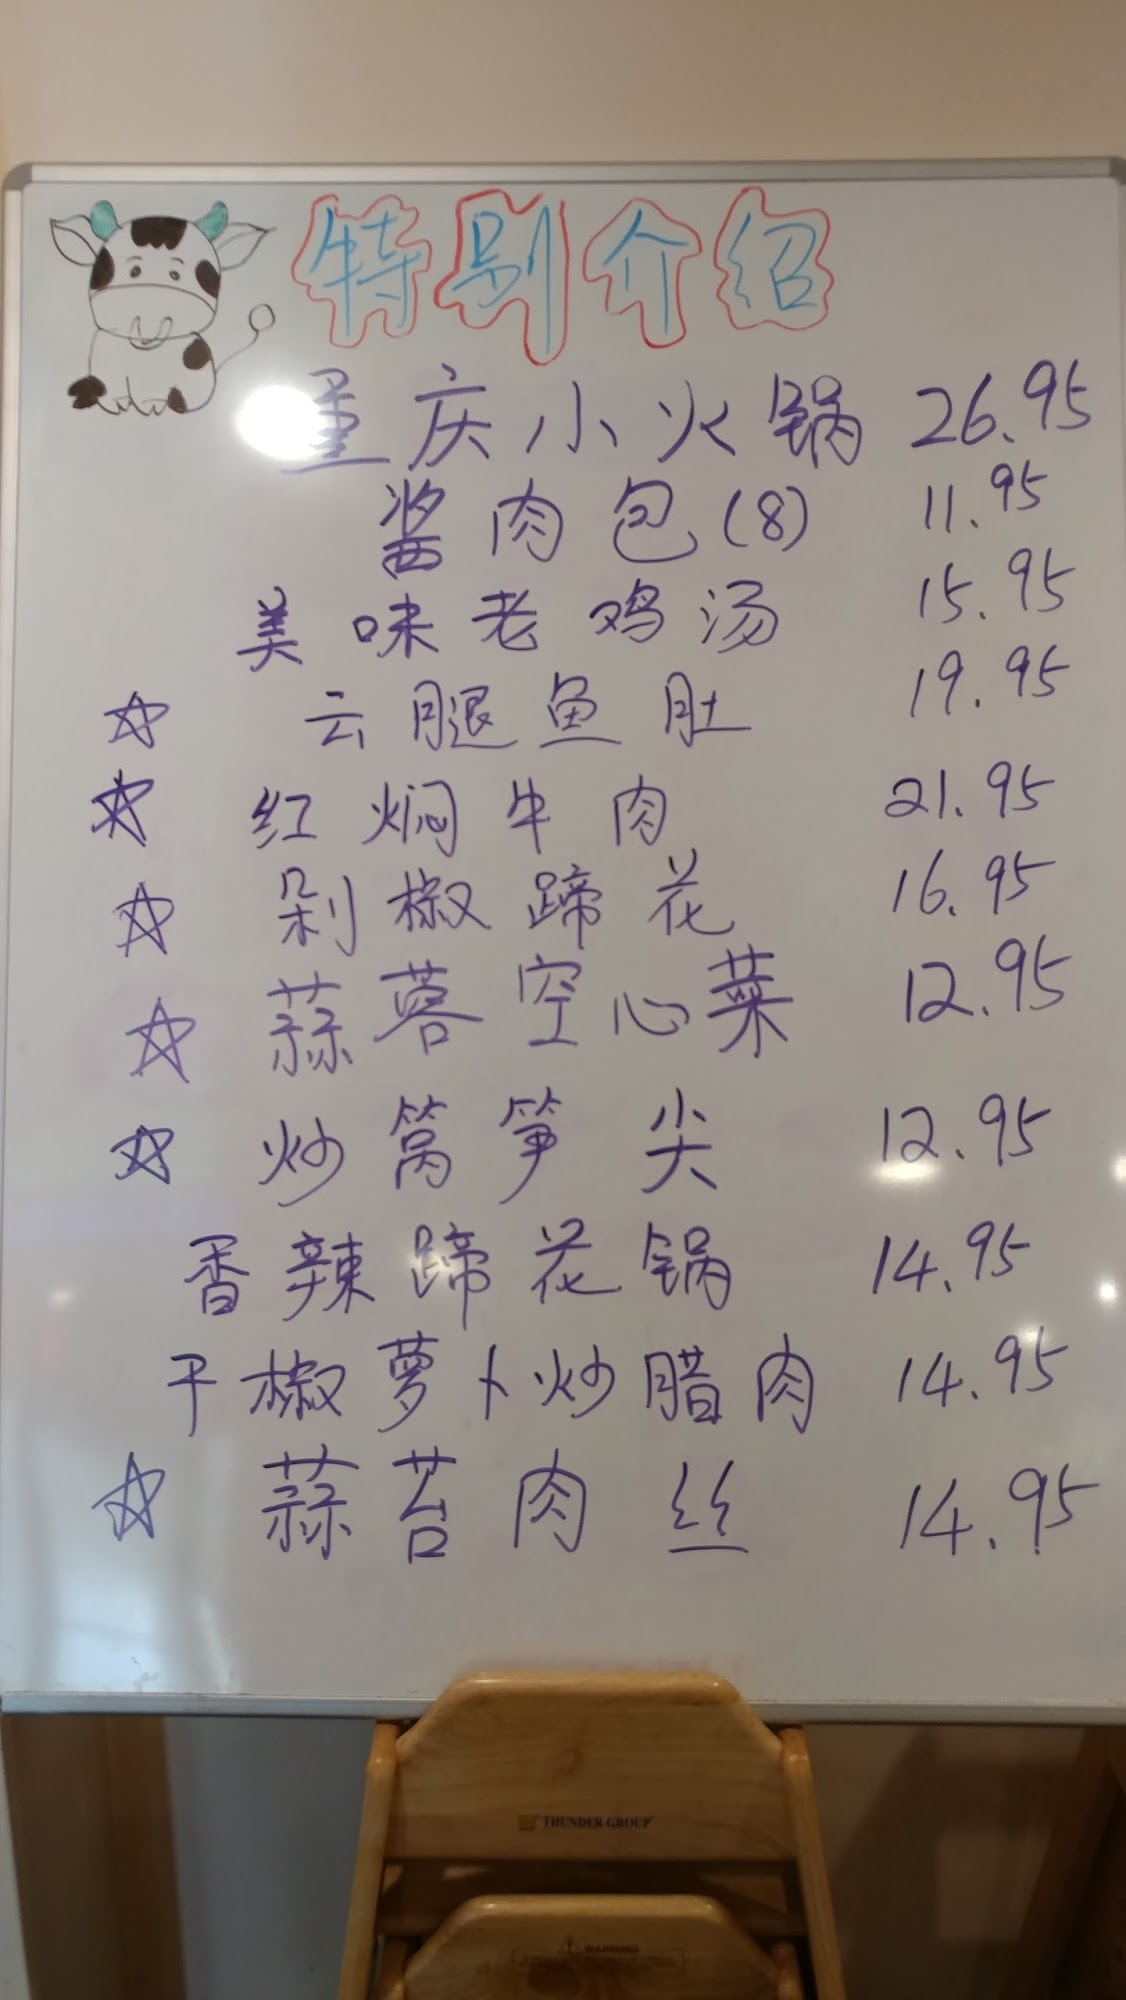 特别介绍
重庆小火锅 26.95
酱肉包(8) 11.95
美味老鸡汤 15.95
☆ 云腿鱼肚 19.95
☆ 红焖牛肉 21.95
☆ 剁椒蹄花 16.95
☆ 蒜蓉空心菜 12.95
☆ 炒莴笋尖 12.95
香辣蹄花锅 14.95
干椒萝卜炒腊肉 14.95
☆ 蒜苔肉丝 14.95
THUNDER GROUP
WARNING